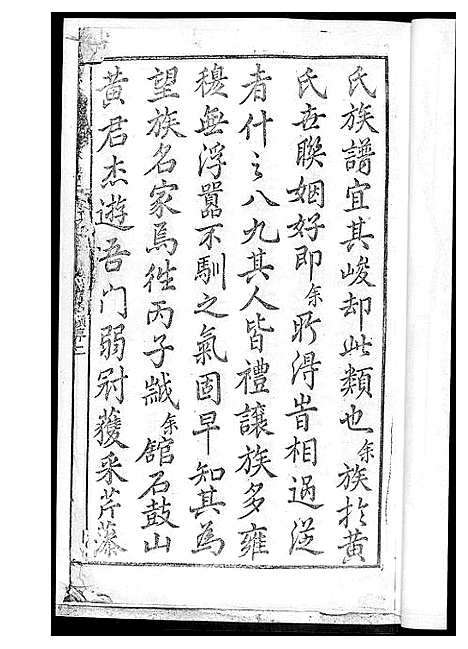 氏族譜宜其峻却此類也余族扵黃
氏世聯姻好即余所得昔相過從
者什之八九其人皆禮讓族多雍
穆無浮嚣不馴之氣固早知其為
望族名家焉徃丙子歲余舘石鼓山
黃君杰遊吾門弱冠獲采芹藻